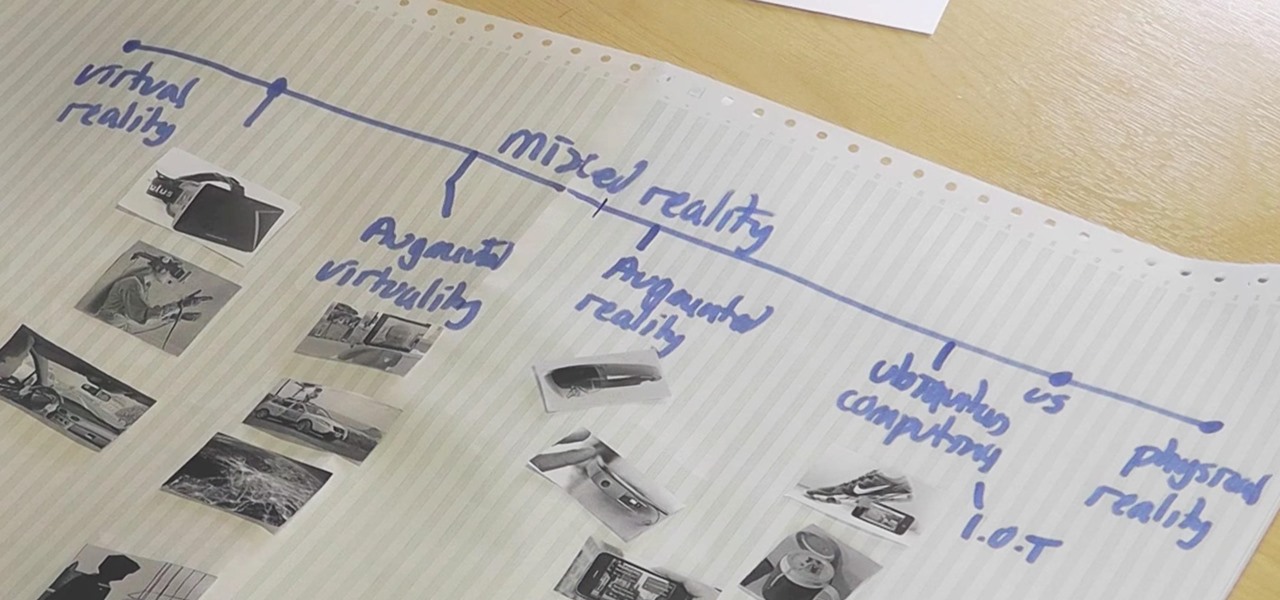 virtual
reality
mixed reality
Augmented
virtuality
Augmented
reality
ubiquitus
computing
I.O.T
us
physical
reality